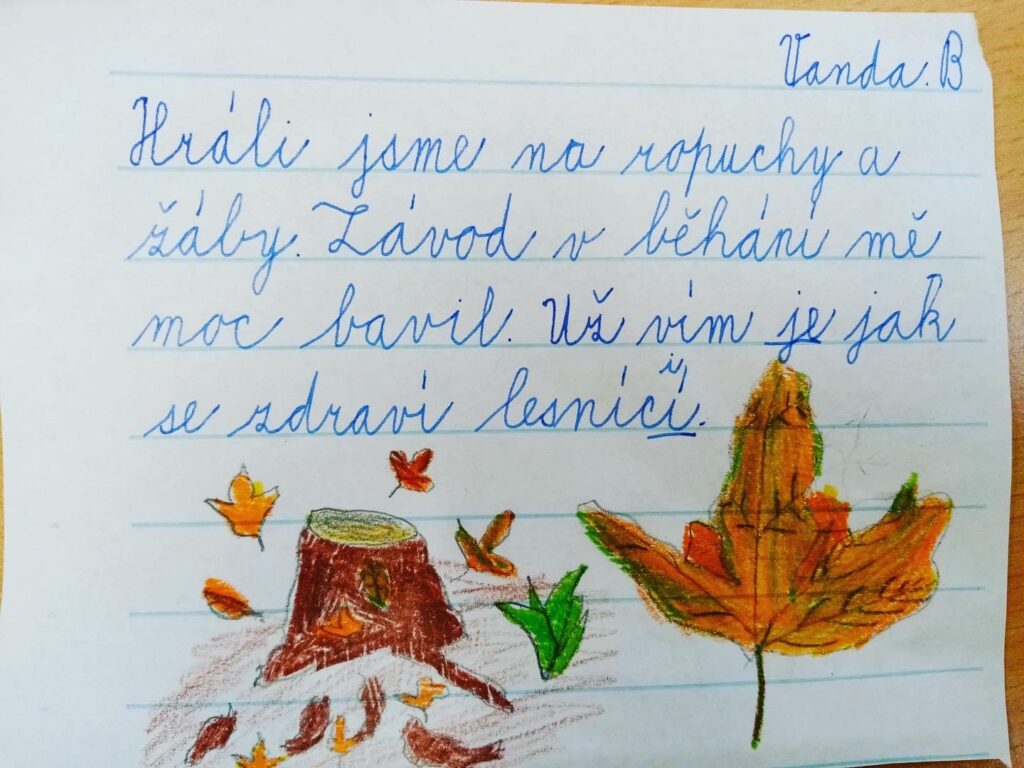 Vanda. B
Hráli jsme na ropuchy a
žáby. Závod v běhání mě
moc bavil. Už vím je jak
se zdraví lesnící.
i